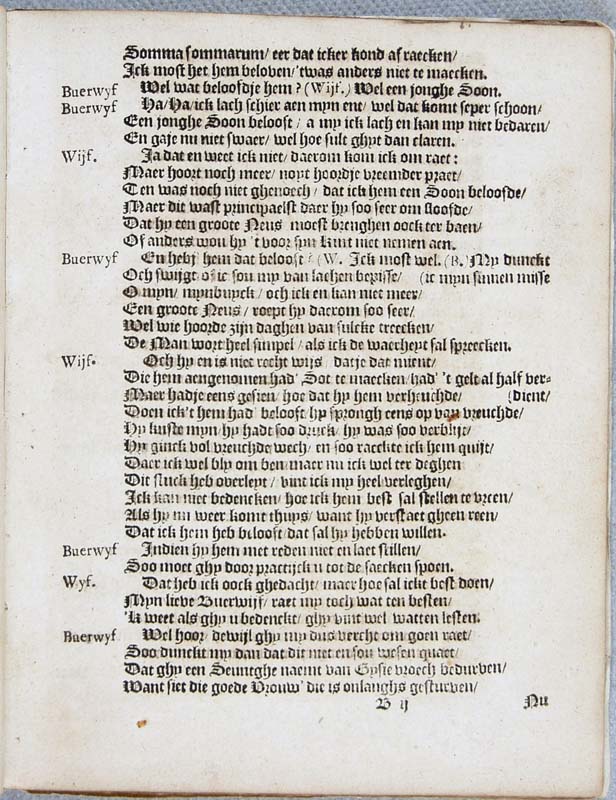 Somma sommarum/ eer dat icker kond af raecken/
Ick most het hem beloven/ 'twas anders niet te maecken.
Buerwyf Wel wat beloofdje hem? (Wijf.) Wel een jonghe Soon.
Buerwyf Ha/ Ha/ ick lach schier aen myn ent/ wel dat komt seper schoon/
Een jonghe Soon belooft/ a my ick lach en kan my niet bedaren/
En gaje nu niet swaer/ wel hoe sult ghyt dan claren.
Wijf. Ja dat en weet ick niet/ daerom kom ick om raet:
Maer hoort noch meer/ noyt hoordje vreemder praet/
Ten was noch niet ghenoech/ dat ick hem een Soon beloofde/
Maer dit wast principaelst daer hy soo seer om sloofde/
Dat hy een groote Neus moest brenghen oock ter baen/
Of anders wou hy 't voor syn kint niet nemen aen.
Buerwyf En hebj' hem dat belooft? (W. Ick most wel. (B.) My dunckt
Och swijgt of ic sou my van lachen bepisse/ (ic myn sinnen misse
O myn/ mynbuyck/ och ick en kan niet meer/
Een groote Neus/ roept hy daerom soo seer/
Wel wie hoorde zijn daghen van sulcke treecken/
De Man wort heel simpel/ als ick de waerheyt sal spreecken.
Wijf. Och hy en is niet recht wijs/ datje dat mient/
Die hem aengenomen had' Sot te maecken/ had' 't gelt al half ver-
Maer hadje eens gesien/ hoe dat hy hem verheuchde/ (dient/
Doen ick't hem had' belooft/ hy sprongh eens op van vreuchde/
Hy kuste myn/ hy hadt soo druck/ hy was soo verblijt/
Hy ginck vol vreuchde wech/ en soo raeckte ick hem quijt/
Daer ick wel bly om ben/ maer nu ick wel ter deghen
Dit stuck heb overleyt/ vint ick my heel verleghen/
Ick kan niet bedencken/ hoe ick hem best sal stellen te vreen/
Als hy nu weer komt thuys/ want hy verstaet gheen reen/
Dat ick hem heb belooft/ dat sal hy hebben willen.
Buerwyf Indien hy hem met reden niet en laet stillen/
Soo moet ghy door practijck u tot de saecken spoen.
Wyf. Dat heb ick oock ghedacht/ maer hoe sal ickt best doen/
Myn lieve Buerwijf/ raet my toch wat ten besten/
'K weet als ghy u bedenckt/ ghy vint wel watten lesten.
Buerwyf Wel hoor/ dewijl ghy my dus vercht om goen raet/
Soo dunckt my dan dat dit niet en sou wesen quaet/
Dat ghy een Seuneghe naemt van Gysie vroech bedurven/
Want siet die goede Vrouw' die is onlanghs gesturven/
B ij Nu